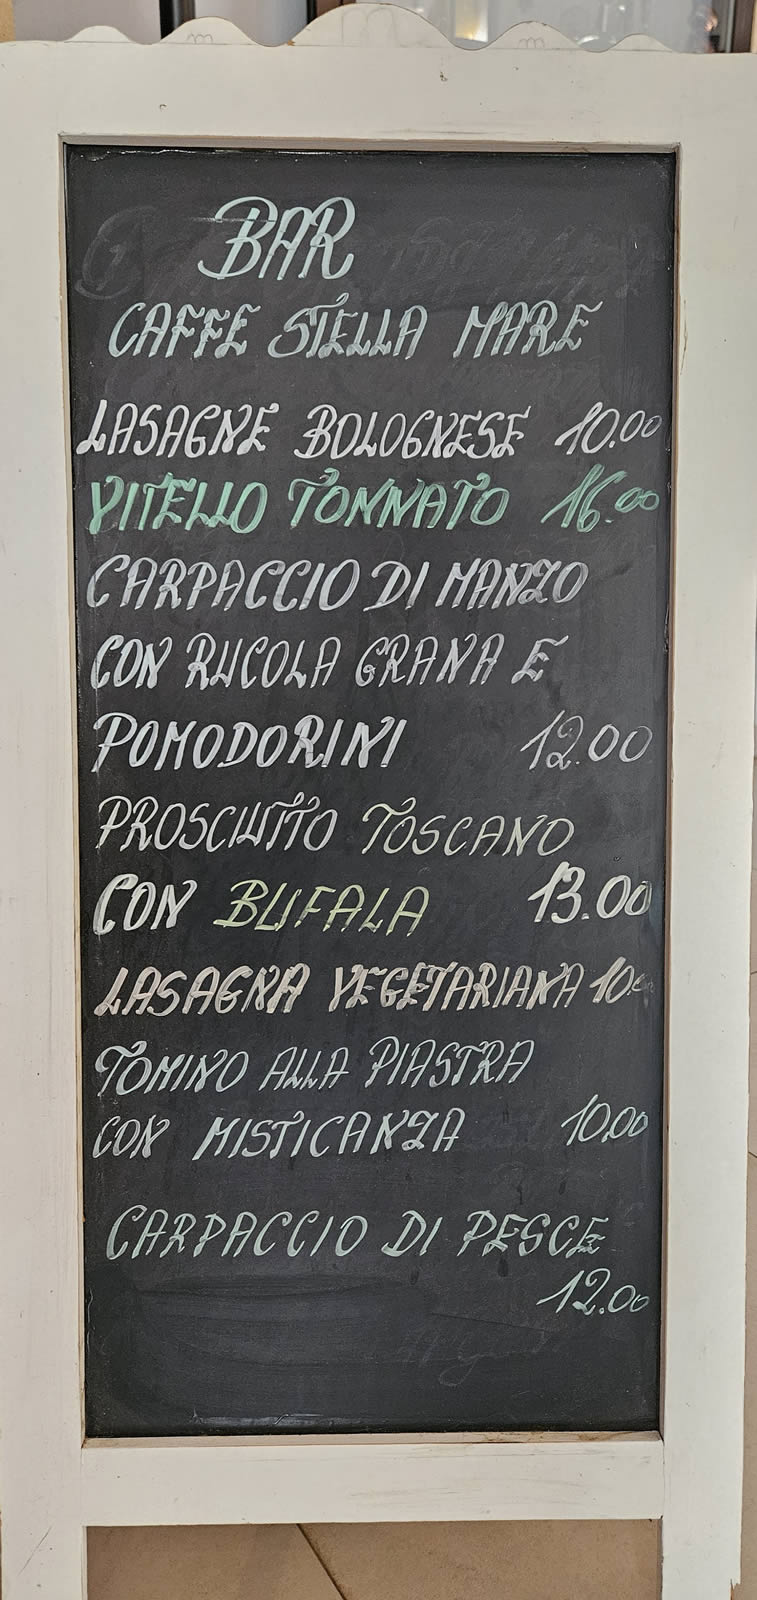 BAR
CAFFE STELLA MARE
LASAGNE BOLOGNESE 10.00
VITELLO TONNATO 16.00
CARPACCIO DI MANZO
CON RUCOLA GRANA E
POMODORINI 12.00
PROSCIUTTO TOSCANO
CON BUFALA 13.00
LASAGNA VEGETARIANA 10.00
TOMINO ALLA PIASTRA
CON MISTICANZA 10.00
CARPACCIO DI PESCE
12.00